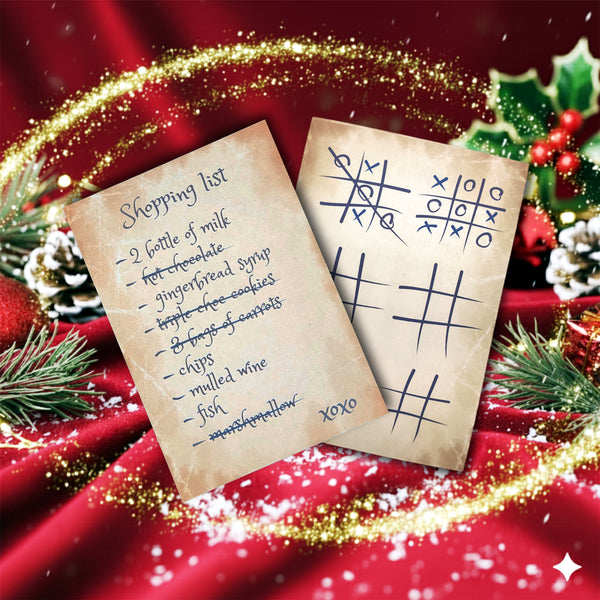 Shopping list
- 2 bottle of milk
- hot chocolate
- gingerbread syrup
- triple choc cookies
- 8 bags of carrots
- chips
- mulled wine
- fish
- marshmallow
xoxo
O X
O
X O
X O O
O O X
X X O